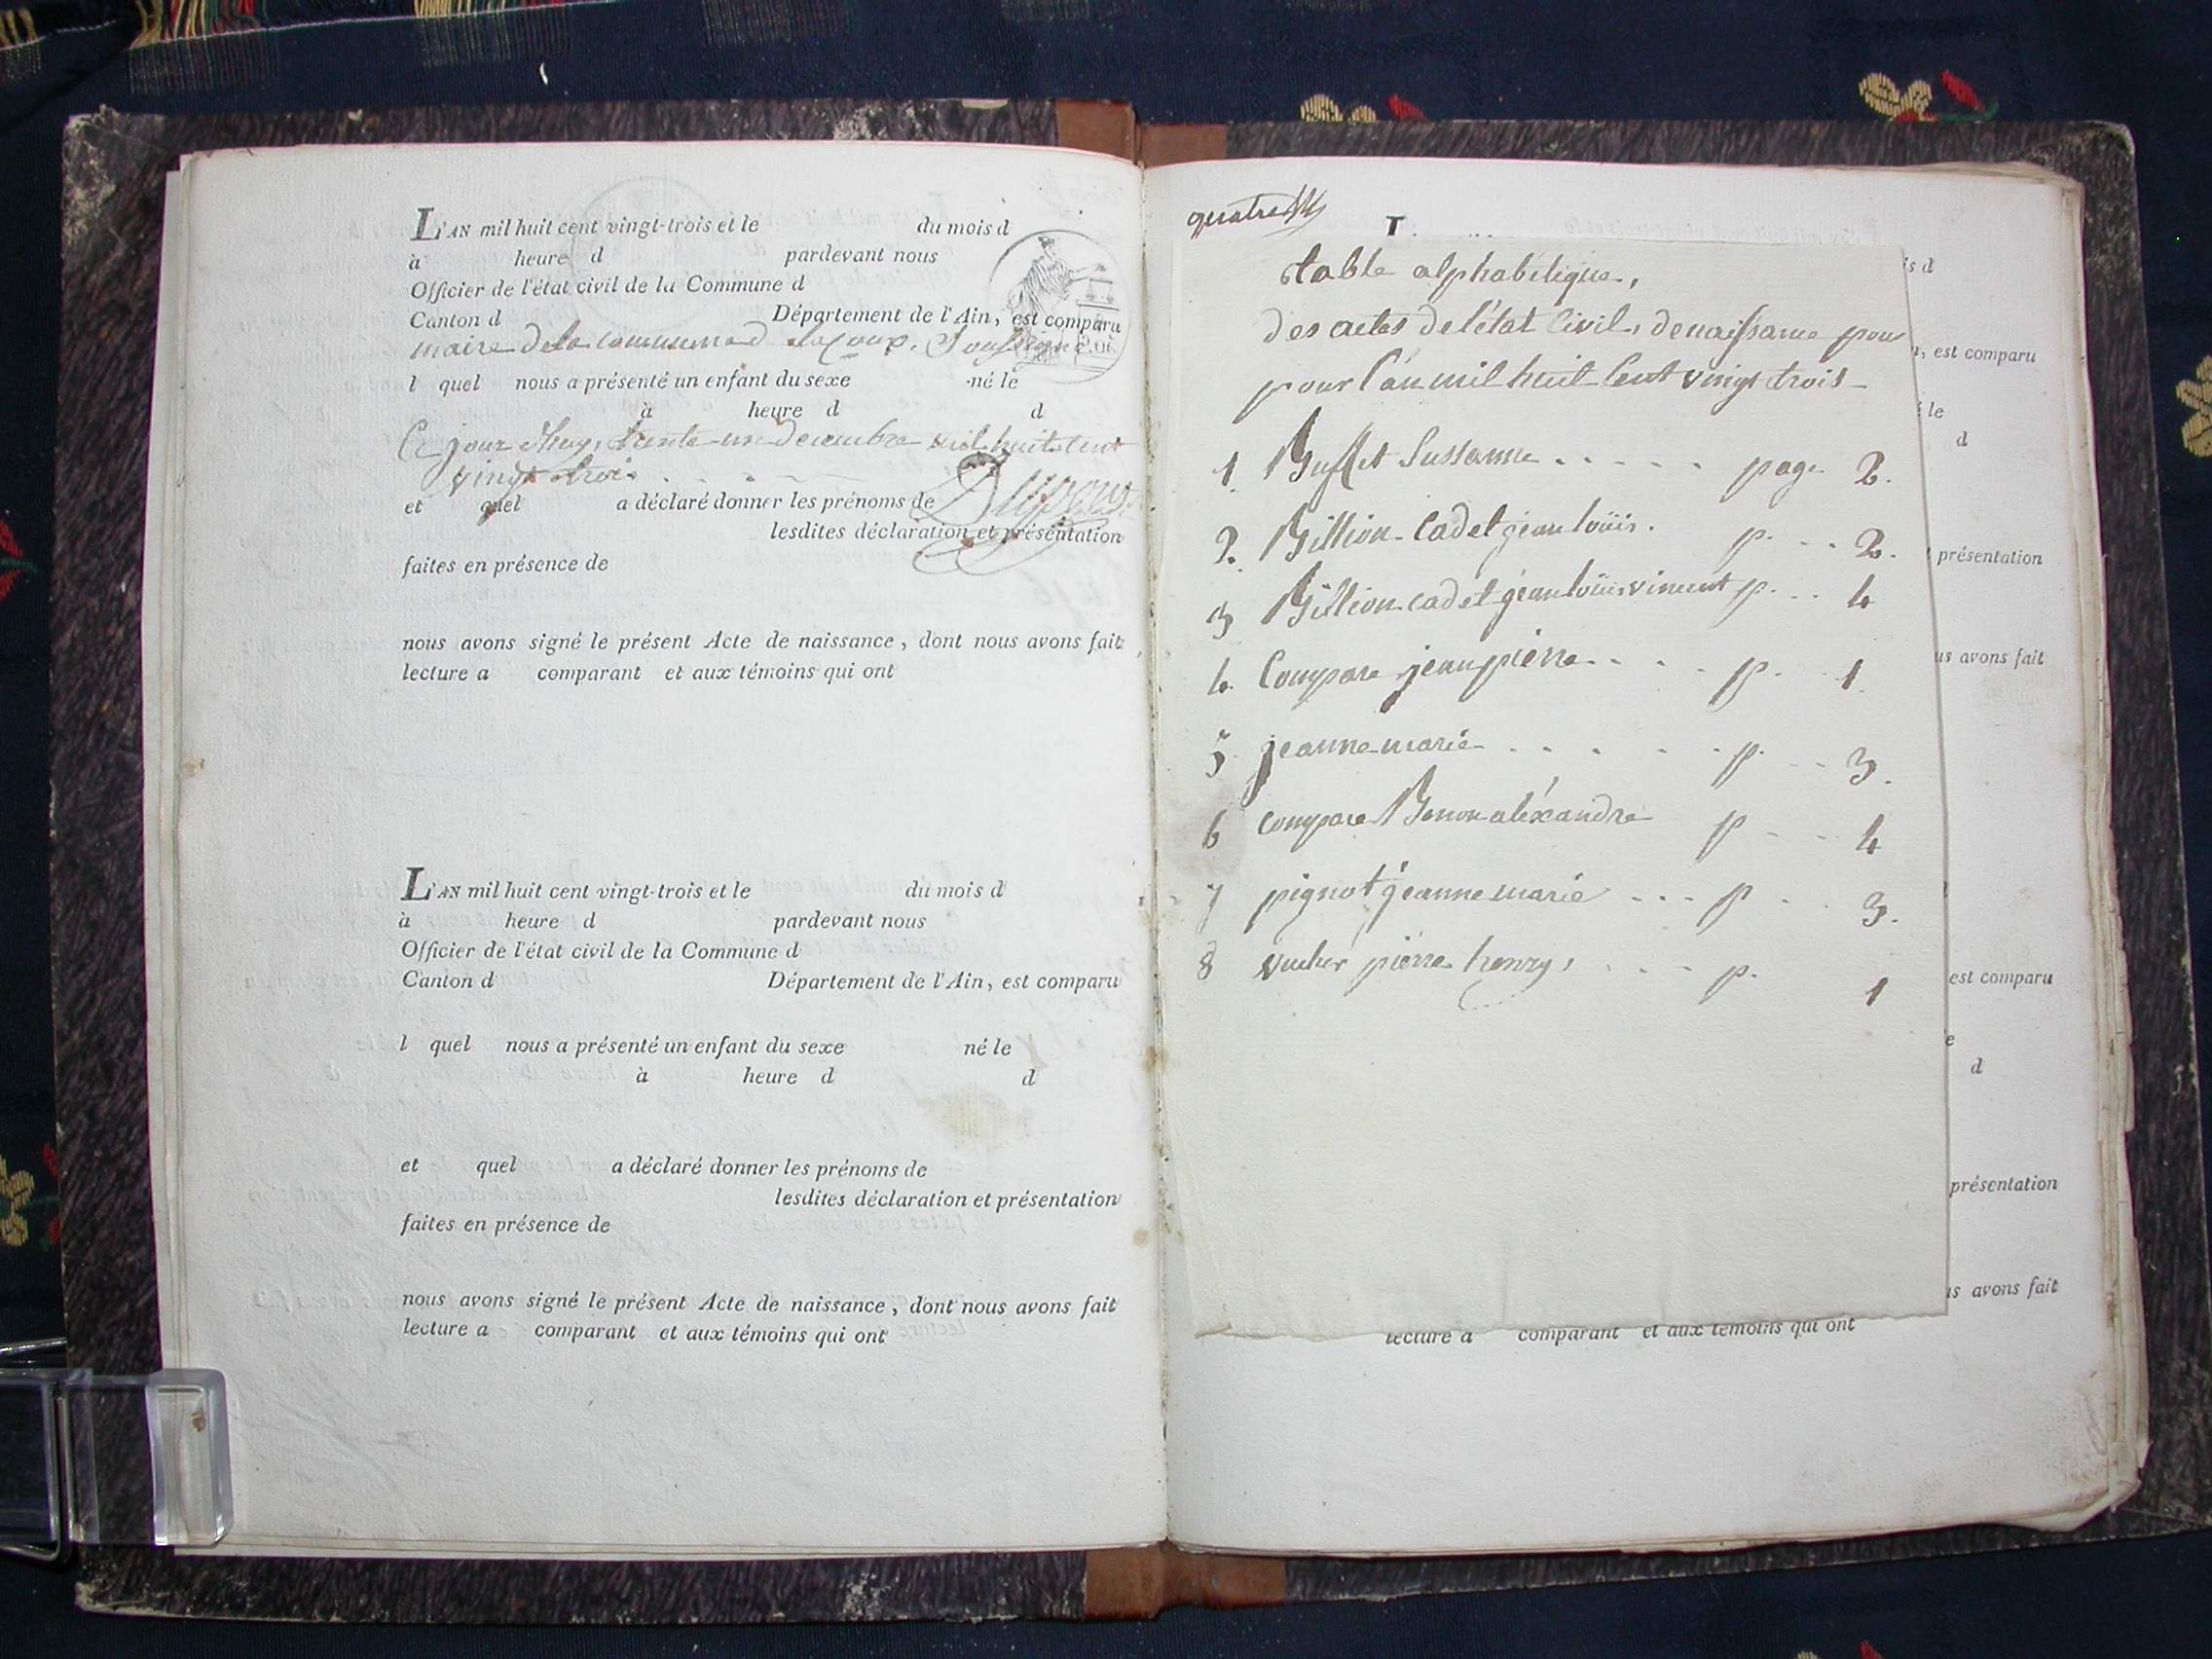 L'AN mil huit cent vingt-trois et le du mois d
à heure d pardevant nous
Officier de l'état civil de la Commune d
Canton d Département de l'Ain, est comparu
maire de la commune d Lacoux, Soussigné
l quel nous a présenté un enfant du sexe né le
à heure d d
Ce jour d'huy, trente un decembre mil huit cent
vingt trois
et quel a déclaré donner les prénoms de
lesdites déclaration et présentation
faites en présence de
nous avons signé le présent Acte de naissance, dont nous avons fait
lecture a comparant et aux témoins qui ont
L'AN mil huit cent vingt-trois et le du mois d
à heure d pardevant nous
Officier de l'état civil de la Commune d
Canton d Département de l'Ain, est comparu
l quel nous a présenté un enfant du sexe né le
à heure d d
et quel a déclaré donner les prénoms de
lesdites déclaration et présentation
faites en présence de
nous avons signé le présent Acte de naissance, dont nous avons fait
lecture a comparant et aux témoins qui ont
quatre
table alphabétique,
des actes de l'état Civil, de naissance pour
pour l'an mil huit Cent vingt trois
1. Buffet Sussanne . . . . . page 2.
2. Billion-Cadet jean louïs. p. . . 2.
3 Billion cadet jean louïs vincent p. . . 4
4. Compare jean pierre . . . . p. . 1.
5. jeanne marie . . . . . p. . . 3.
6 compare Benon aléxandre p . . 4
7 pignot jeanne marie . . . p . . 3.
8 vucher pierre henry, . . . . p. 1
is d
est comparu
le
d
présentation
us avons fait
est comparu
e
d
présentation
us avons fait
lecture a comparant et aux témoins qui ont